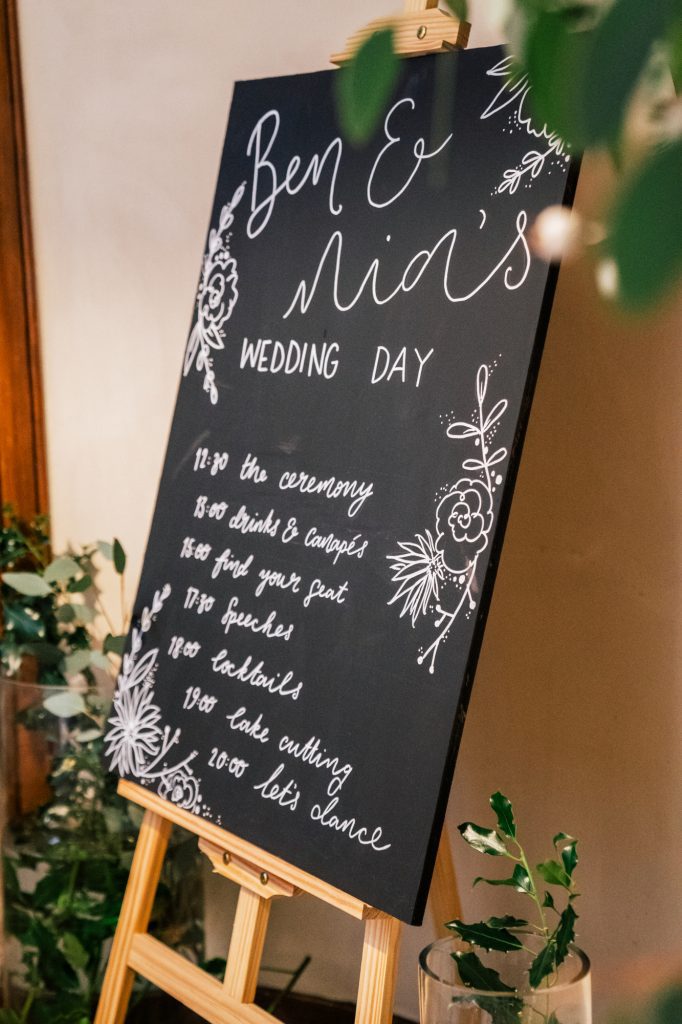 Ben &
Mia's
WEDDING DAY
12:30 the ceremony
13:00 drinks & canapés
15:00 find your seat
17:30 Speeches
18:00 Cocktails
19:00 Cake cutting
20:00 let's dance